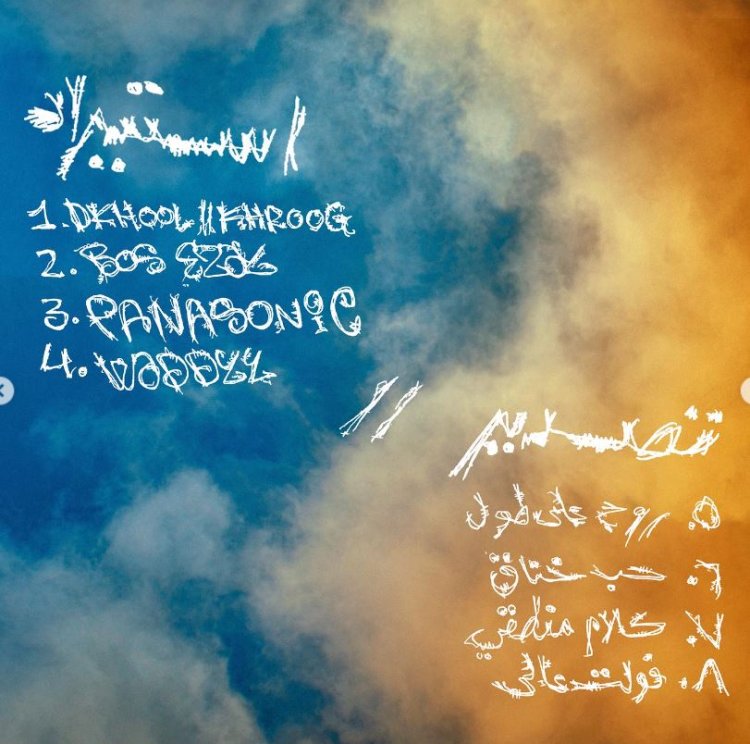 استيراد
1. DKHOOL//KHROOG
2. BOS
3. PANASONIC
4.
//
تصدير
٥. روح على طول
٦. حب خناق
٧. كلام منطقي
٨. فولت عالي